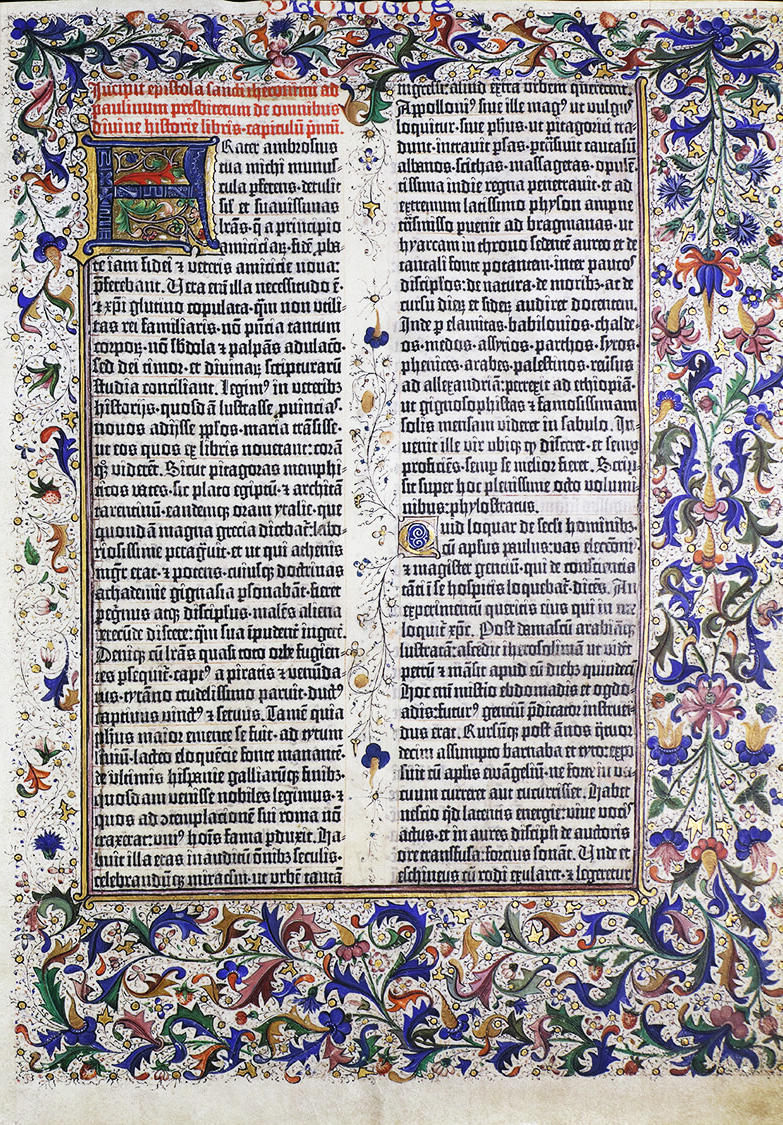 PROLOGUS
Incipit epistola sancti iheronimi ad
paulinum presbiterum de omnibus
divine historie libris·capitulū p̄mū.
Frater ambrosius
tua michi munus-
cula p̱ferens·detulit
sił et suavissimas
lr̄as·q̄ a principio
amiciciaꝝ·fidē p̱ba-
te iam fidei ⁊ veteris amicicie nova:
p̄ferebant. Vera em̄ illa necessitudo ē·
⁊ xp̄i glutino copulata·q̄m non utili-
tas rei familiaris·nō p̄ntia tantum
corpoꝝ·nō sb̄dola ⁊ palpās adulacō·
sed dei timor·et divinaꝝ scripturarū
studia conciliant. Legim⁹ in veterib⁊
historijs·quosdā lustrasse p̱vincias·
novos adijsse pp̱los·maria trāsisse·
ut eos quos ex libris noverant: corā
q̱⁊ viderēt. Sicut pitagoras memphi-
ticos vates·sic plato egiptū·⁊ architā
tarentinū·eandemq̱⁊ oram ytalie·que
quondā magna grecia dicebat̄: labo-
riosissime peragͥvit·et ut qui athenis
mgr̄ erat·⁊ potens·cuiusq̱⁊ doctrinas
achademie gignasia p̱sonabāt·fieret
peg̓nus atq̱⁊ discipłus·malēs aliena
verecūde discere: q̄m sua īpudent̓ ingerere.
Deniq̱⁊ cū lr̄as quasi toto orbe fugien-
tes p̱sequit̄·capt⁹ a piratis ⁊ venūda-
tus·tyrāno crudelissimo paruit·duct⁹
captivus vinct⁹ ⁊ servus. Tamē quia
ph̄sus maior emente se fuit·ad tytum
liviū·lacteo eloquēcie fonte manantē
de ultimis hispanie galliarūq̱⁊ finib⁊·
quosdam venisse nobiles legimus·⁊
quos ad ꝯtemplationē sui roma nō
traxerat: uni⁹ hoīs fama p̱duxit. Ha-
buit illa etas inauditū ōnib⁊ seculis·
celebrandūq̱⁊ miraclm̄·ut urbē tantā
ingressi: aliud extra urbem quererent.
Apolloni⁹ sive ille mag⁹ ut vulgus
loquitur·sive ph̄us·ut pitagorici tra-
dunt·intravit p̱sas·p̱trāsivit caucasū·
albanos·scithas·massagetas·opulē-
tissima indie regna penetravit·et ad
extremum latissimo physon ampne
trāsmisso p̱venit ad bragmanas·ut
hyarcam in throno sedentē aureo et de
tantali fonte potantem·inter pauc̓
discipłos: de natura·de morib⁊·ac de
cursu dieꝝ et sideꝝ audiret docentem.
Inde p̱ elamitas·babilonios·chalde-
os·medos·assyrios·parthos·syros·
phenices·arabes·palestinos·rev̓sus
ad allexandriā: perrexit ad ethiopiā·
ut gignosophistas ⁊ famosissimam
solis mensam videret in sabulo. In-
venit ille vir ubiq̱⁊ qd̓ disceret·et semp̱
proficiēs·semp̱ se melior fieret. Scrip-
sit super hoc plenissime octo volumi-
nibus: phylostratus.
Quid loquar de secłi hominib⁊·
cū apłus paulus: vas elecc̄oīs·
⁊ magister genciū·qui de consciencia
tāti ī se hospicis loquebat̄·dicēs. An
experimentū queritis eius qui in me
loquit̄ xp̄c. Post damascū arabiāq̱⁊
lustratā: ascēdit iherosolimā ut videret
petrū ⁊ māsit apud eū dieb⁊ quindecī.
Hoc em̄ mistio ebdomadis et ogdo-
adis: futur⁹ genciū p̄dicator instruen-
dus erat. Rursūq̱⁊ post ānos q̄tuor-
decim assumpto barnaba et tyto: expo-
suit cū apłis ewāgeliū·ne forte in va-
cuum curreret aut cucurrisset. Habet
nescio qd̓ latentis energie: vive vocis
actus·et in aures discipłi de auctoris
ore transfusa: forcius sonāt. Unde et
eschineus cū rodi exularet·⁊ legeretur